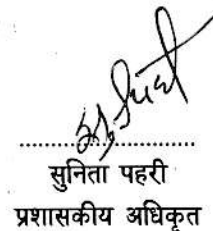 ..............................
सुनिता पहरी
प्रशासकीय अधिकृत